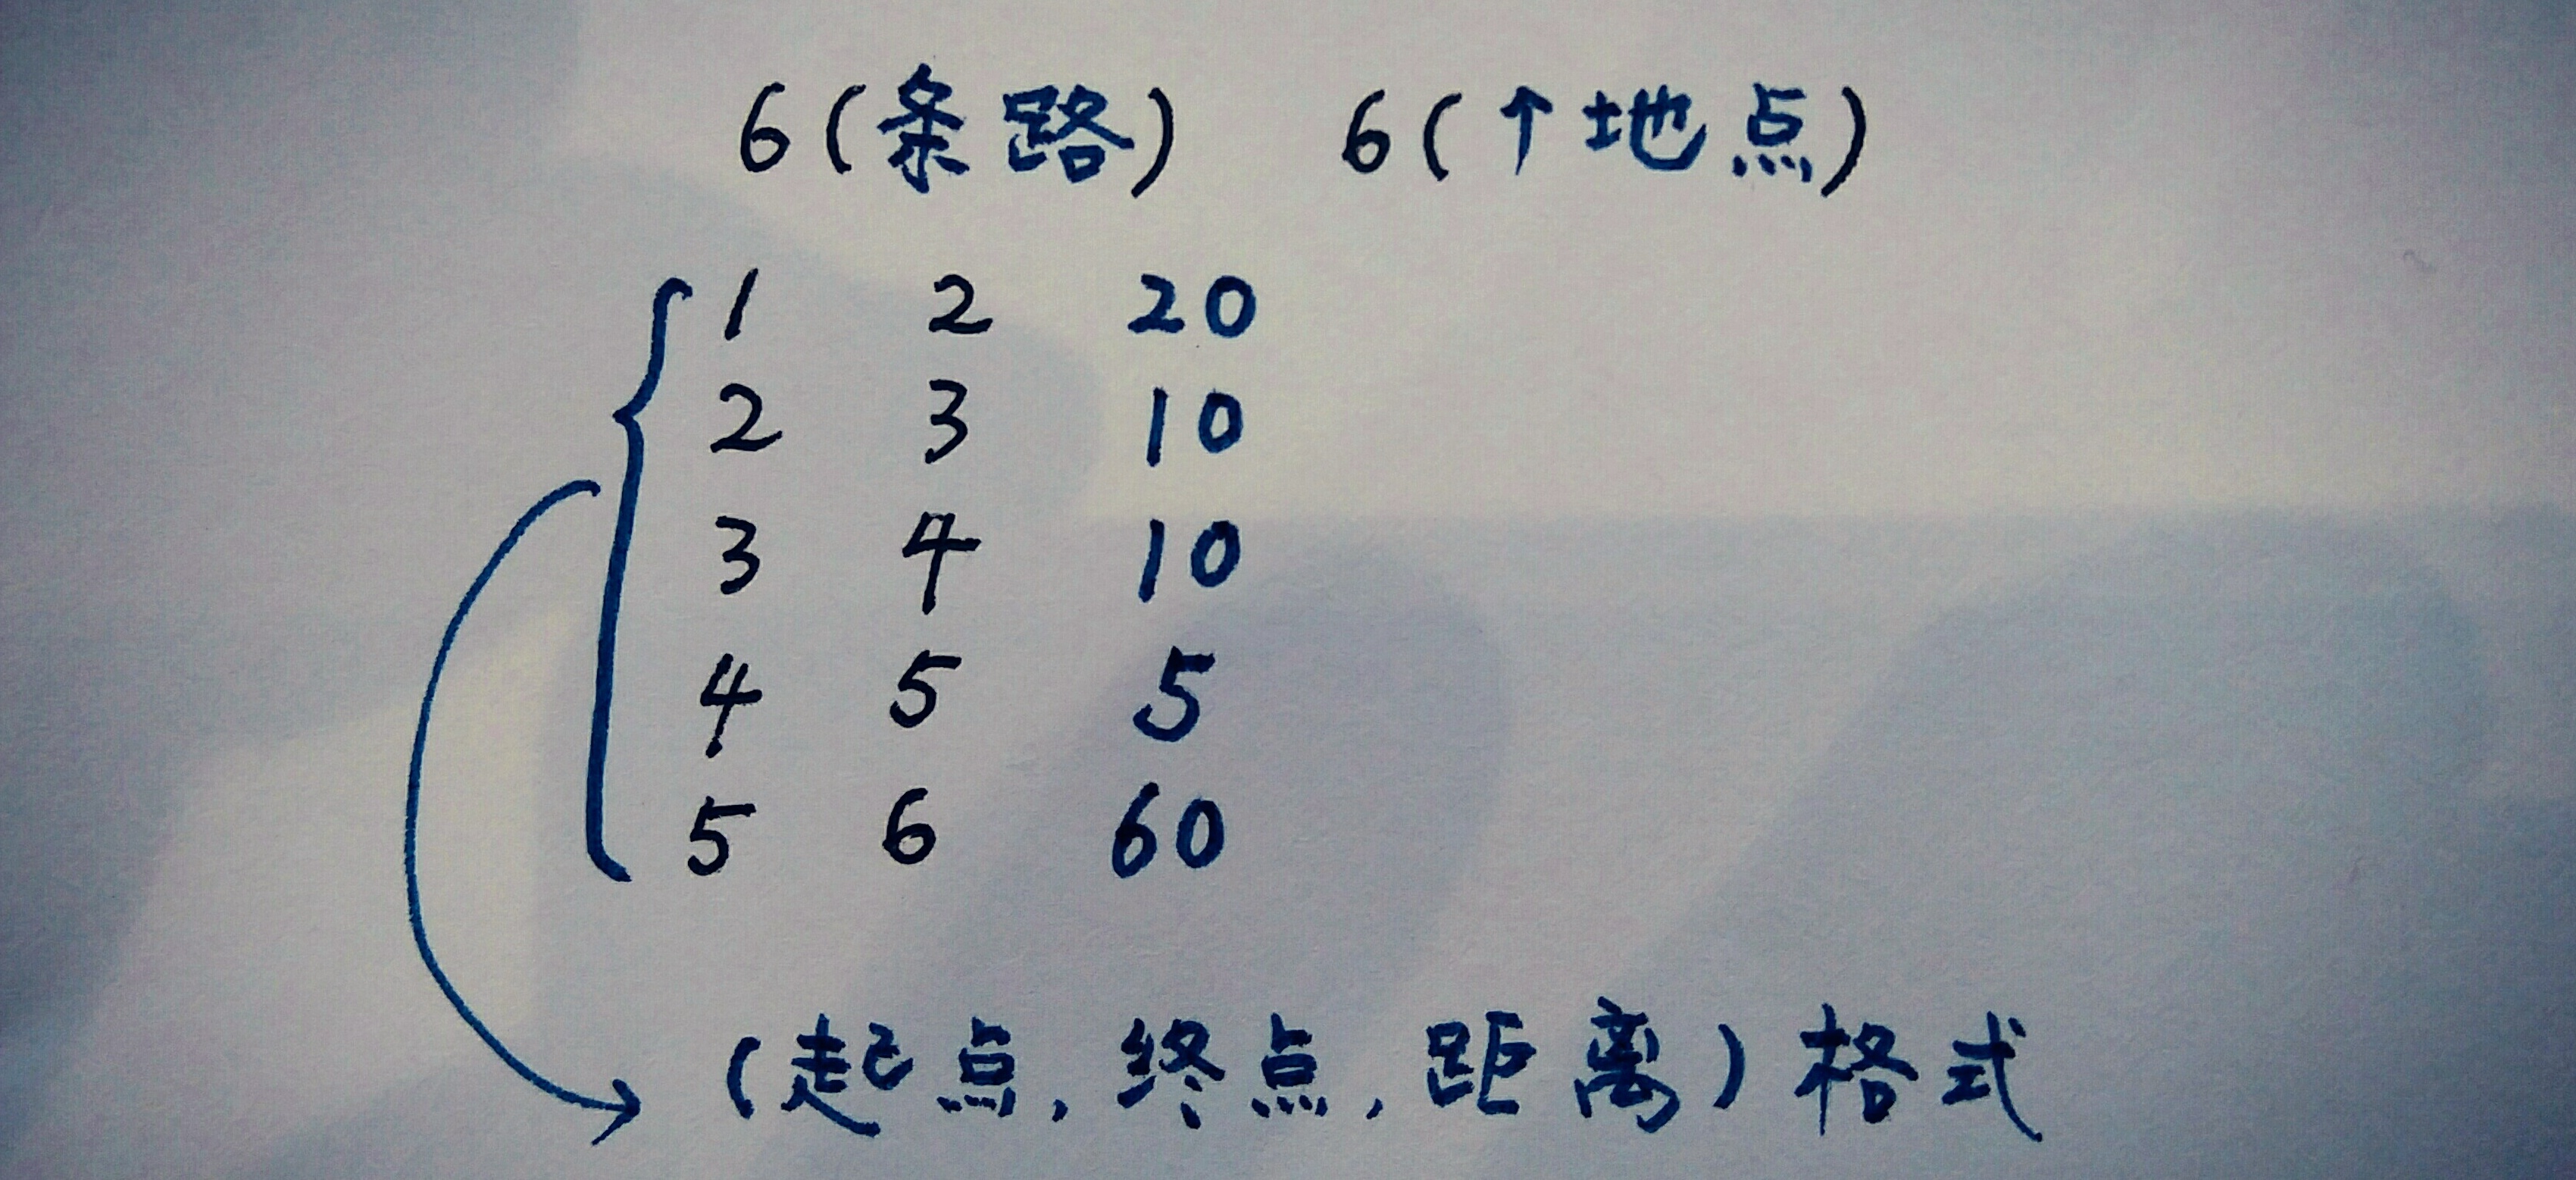 6(条路) 6(个地点)
1 2 20
2 3 10
3 4 10
4 5 5
5 6 60
(起点,终点,距离)格式